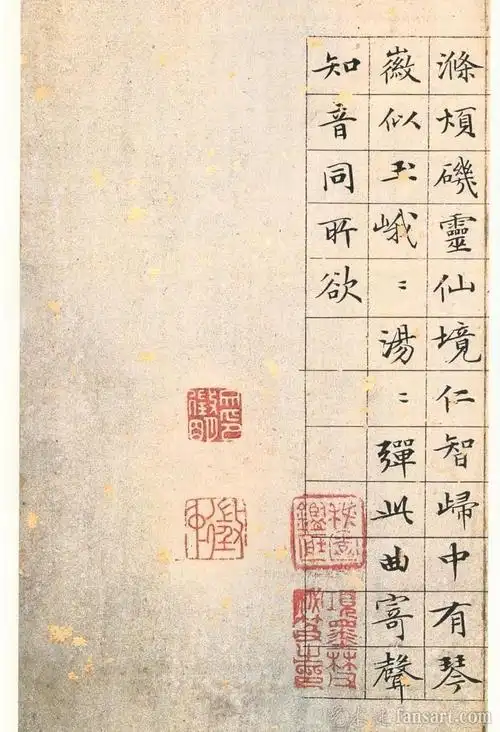 滌煩磯靈仙境仁智歸中有琴
徽似玉峨〻湯〻彈此曲寄聲
知音同所欲
fansart.com